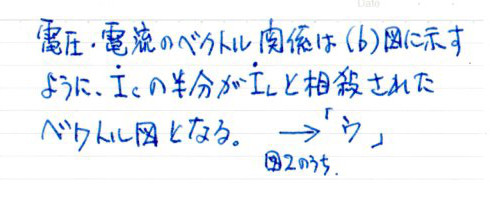 電圧・電流のベクトル関係は(b)図に示す
ように、İcの半分がİLと相殺された
ベクトル図となる。 →「ウ」
図2のうち.